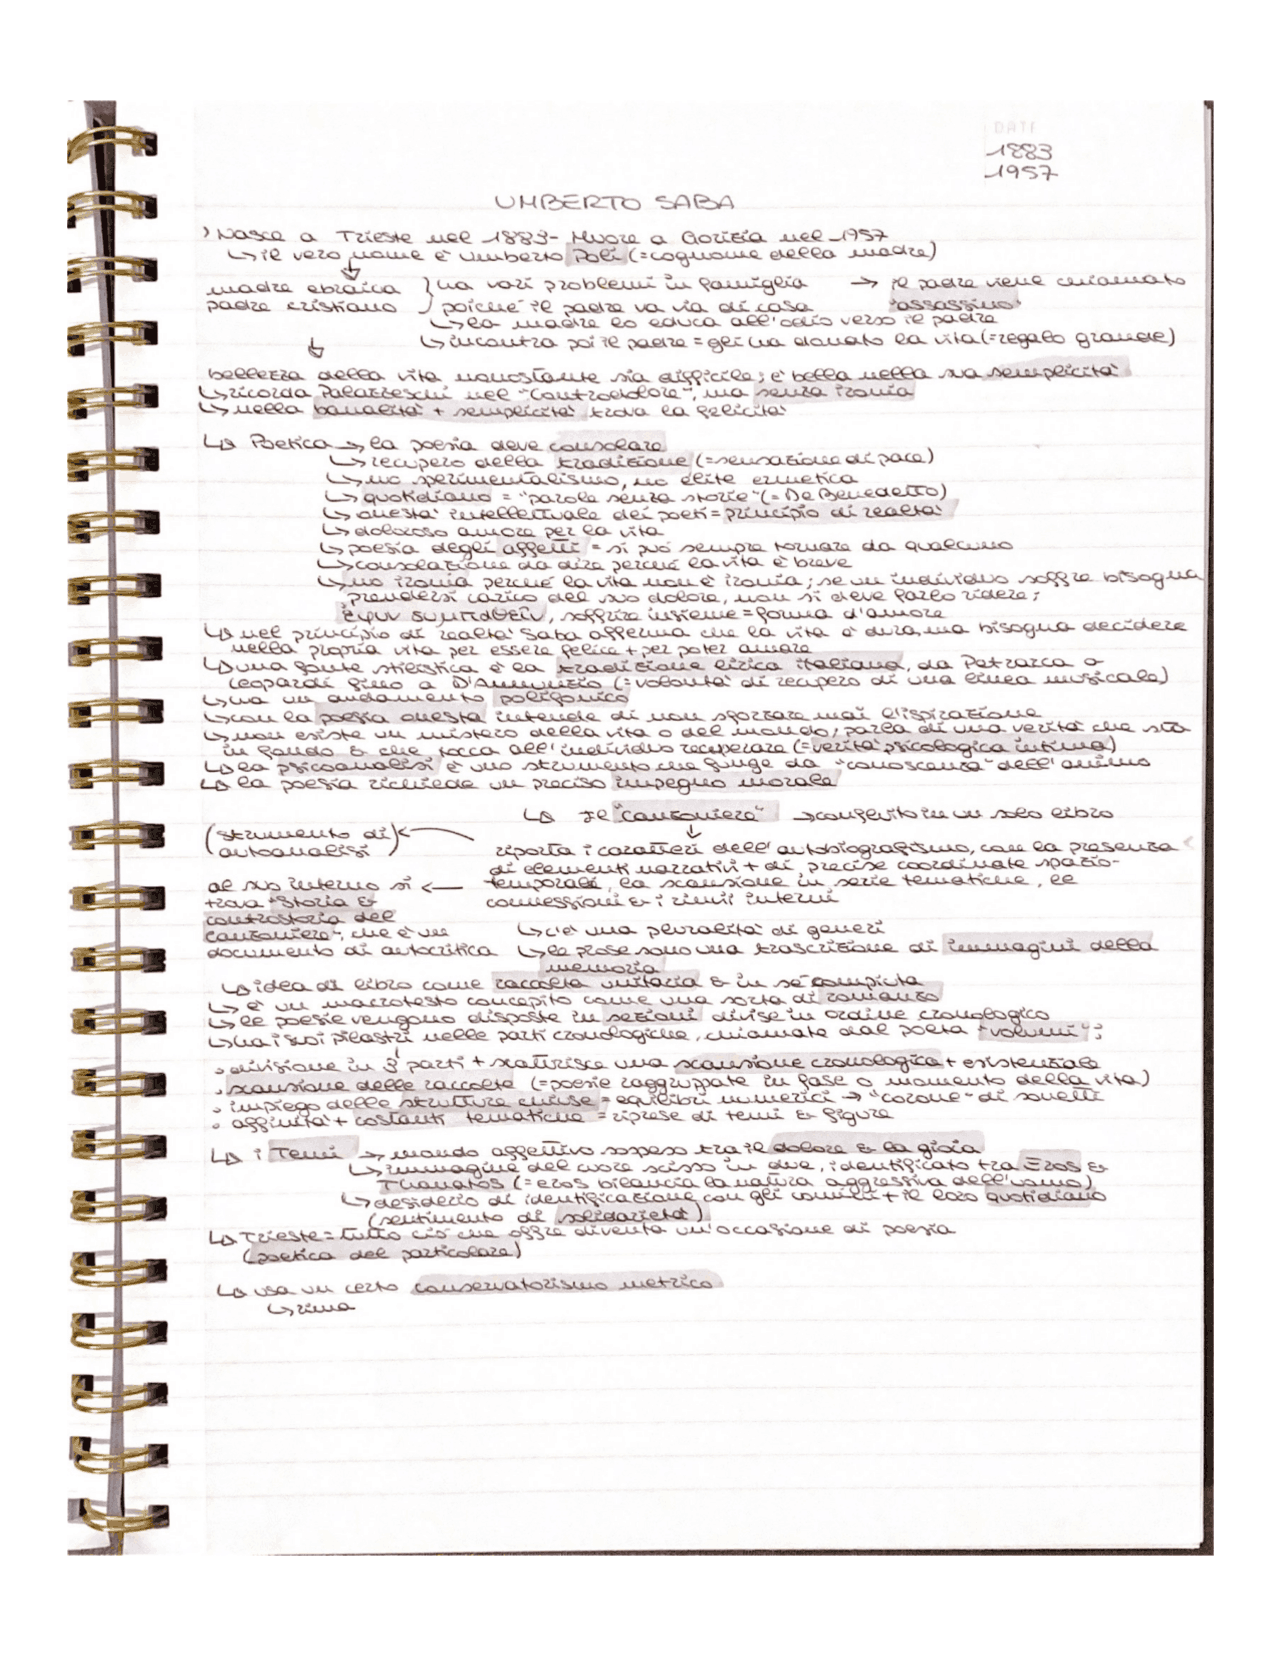 1883
1957
UMBERTO SABA
Nasce a Trieste nel 1883 - Muore a Gorizia nel 1957
↳ il vero nome è Umberto Poli (= cognome della madre)
madre ebraica } ha vari problemi in famiglia → il padre viene chiamato
padre cristiano poiché il padre va via di casa "assassino"
↳ la madre lo educa all'odio verso il padre
↳ incontra poi il padre = gli ha donato la vita (= regalo grande)
bellezza della vita nonostante sia difficile; è bella nella sua semplicità
↳ ricorda Palazzeschi nel "Controdolore", ma senza ironia
↳ nella banalità + semplicità trova la felicità
↳ Poetica → la poesia deve consolare
↳ recupero della tradizione (= sensazione di pace)
↳ no sperimentalismo, no elite ermetica
↳ quotidiano = "parole senza storie" (= De Benedetto)
↳ onestà intellettuale dei poeti = principio di realtà
↳ doloroso amore per la vita
↳ poesia degli affetti = si può sempre tornare da qualcuno
↳ consolazione da dire perché la vita è breve
↳ no ironia perché la vita non è ironia; se un individuo soffre bisogna
prendersi carico del suo dolore, non si deve farlo ridere;
συμπαθεῖν, soffrire insieme = forma d'amore
↳ nel principio di realtà Saba afferma che la vita è dura, ma bisogna decidere
nella propria vita per essere felice + per poter amare
↳ una fonte stilistica è la tradizione lirica italiana, da Petrarca a
Leopardi fino a D'Annunzio (= volontà di recupero di una linea musicale)
↳ ha un andamento polifonico
↳ con la poesia onesta intende di non sforzare mai l'ispirazione
↳ non esiste un mistero della vita o del mondo; parla di una verità che sta
in fondo & che tocca all'individuo recuperare (= verità psicologica intima)
↳ la psicoanalisi è uno strumento che funge da "conoscenza" dell'animo
↳ la poesia richiede un preciso impegno morale
↳ Il "Canzoniere" → confluito in un solo libro
(strumento di) ←
autoanalisi
riporta i caratteri dell'autobiografismo, con la presenza
di elementi narrativi + di precise coordinate spazio-
temporali, la scansione in serie tematiche, le
connessioni & i rinvii interni
al suo interno si ←
trova "Storia &
controstoria del
canzoniere", che è un
documento di autocritica
↳ c'è una pluralità di generi
↳ le prose sono una trascrizione di immagini della
memoria
↳ idea di libro come raccolta unitaria & in sé compiuta
↳ è un macrotesto concepito come una sorta di romanzo
↳ le poesie vengono disposte in sezioni divise in ordine cronologico
↳ ha i suoi pilastri nelle parti cronologiche, chiamate dal poeta "volumi";
• divisione in 3 parti + scaturisce una scansione cronologica + esistenziale
• scansione delle raccolte (= poesie raggruppate in fase o momento della vita)
• impiego delle strutture chiuse = equilibri numerici → "corone" di sonetti
• affinità + costanti tematiche = riprese di temi & figure
↳ i Temi → mondo affettivo sospeso tra il dolore & la gioia
↳ immagine del cuore scisso in due, identificato tra Eros &
Thanatos (= eros bilancia la natura aggressiva dell'uomo)
↳ desiderio di identificazione con gli umili + il loro quotidiano
(sentimento di solidarietà)
↳ Trieste = tutto ciò che offre diventa un'occasione di poesia
(poetica del particolare)
↳ usa un certo conservatorismo metrico
↳ rima